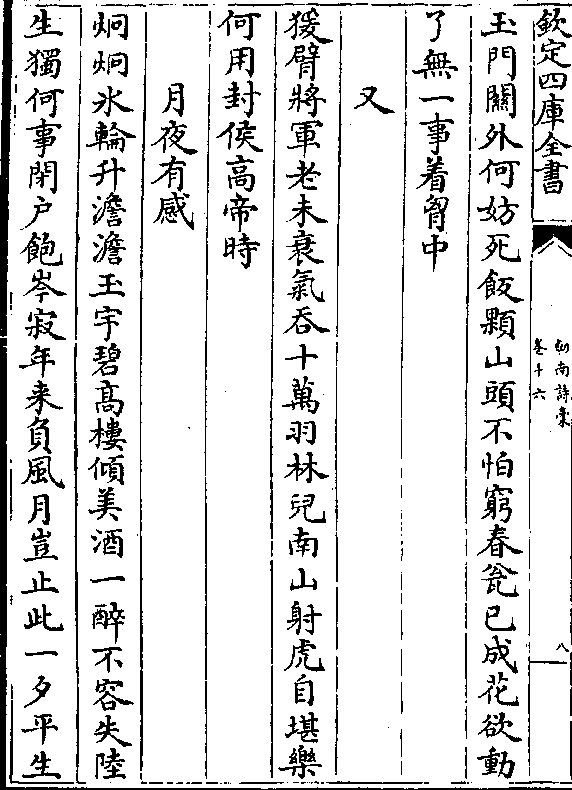 欽定四庫全書
劒南詩稾
卷十六
八
玉門關外何妨死飯顆山頭不怕窮春瓮已成花欲動
了無一事着胷中
又
猨臂將軍老未衰氣吞十萬羽林兒南山射虎自堪樂
何用封侯高帝時
月夜有感
炯炯氷輪升澹澹玉宇碧髙樓傾美酒一醉不容失陸
生獨何事閉户飽岑寂年来負風月豈止此一夕平生